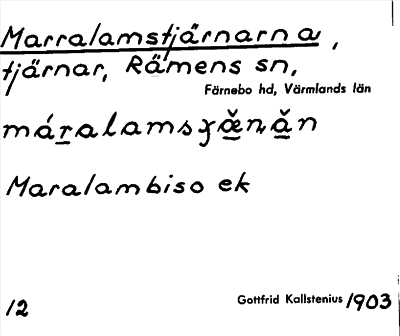 Marralamstjärnarna,
tjärnar, Rämens sn,
Färnebo hd, Värmlands län
máṟalamsꭓæ̱̌ɳǎ̱n
Maralambiso ek
12 Gottfrid Kallstenius 1903